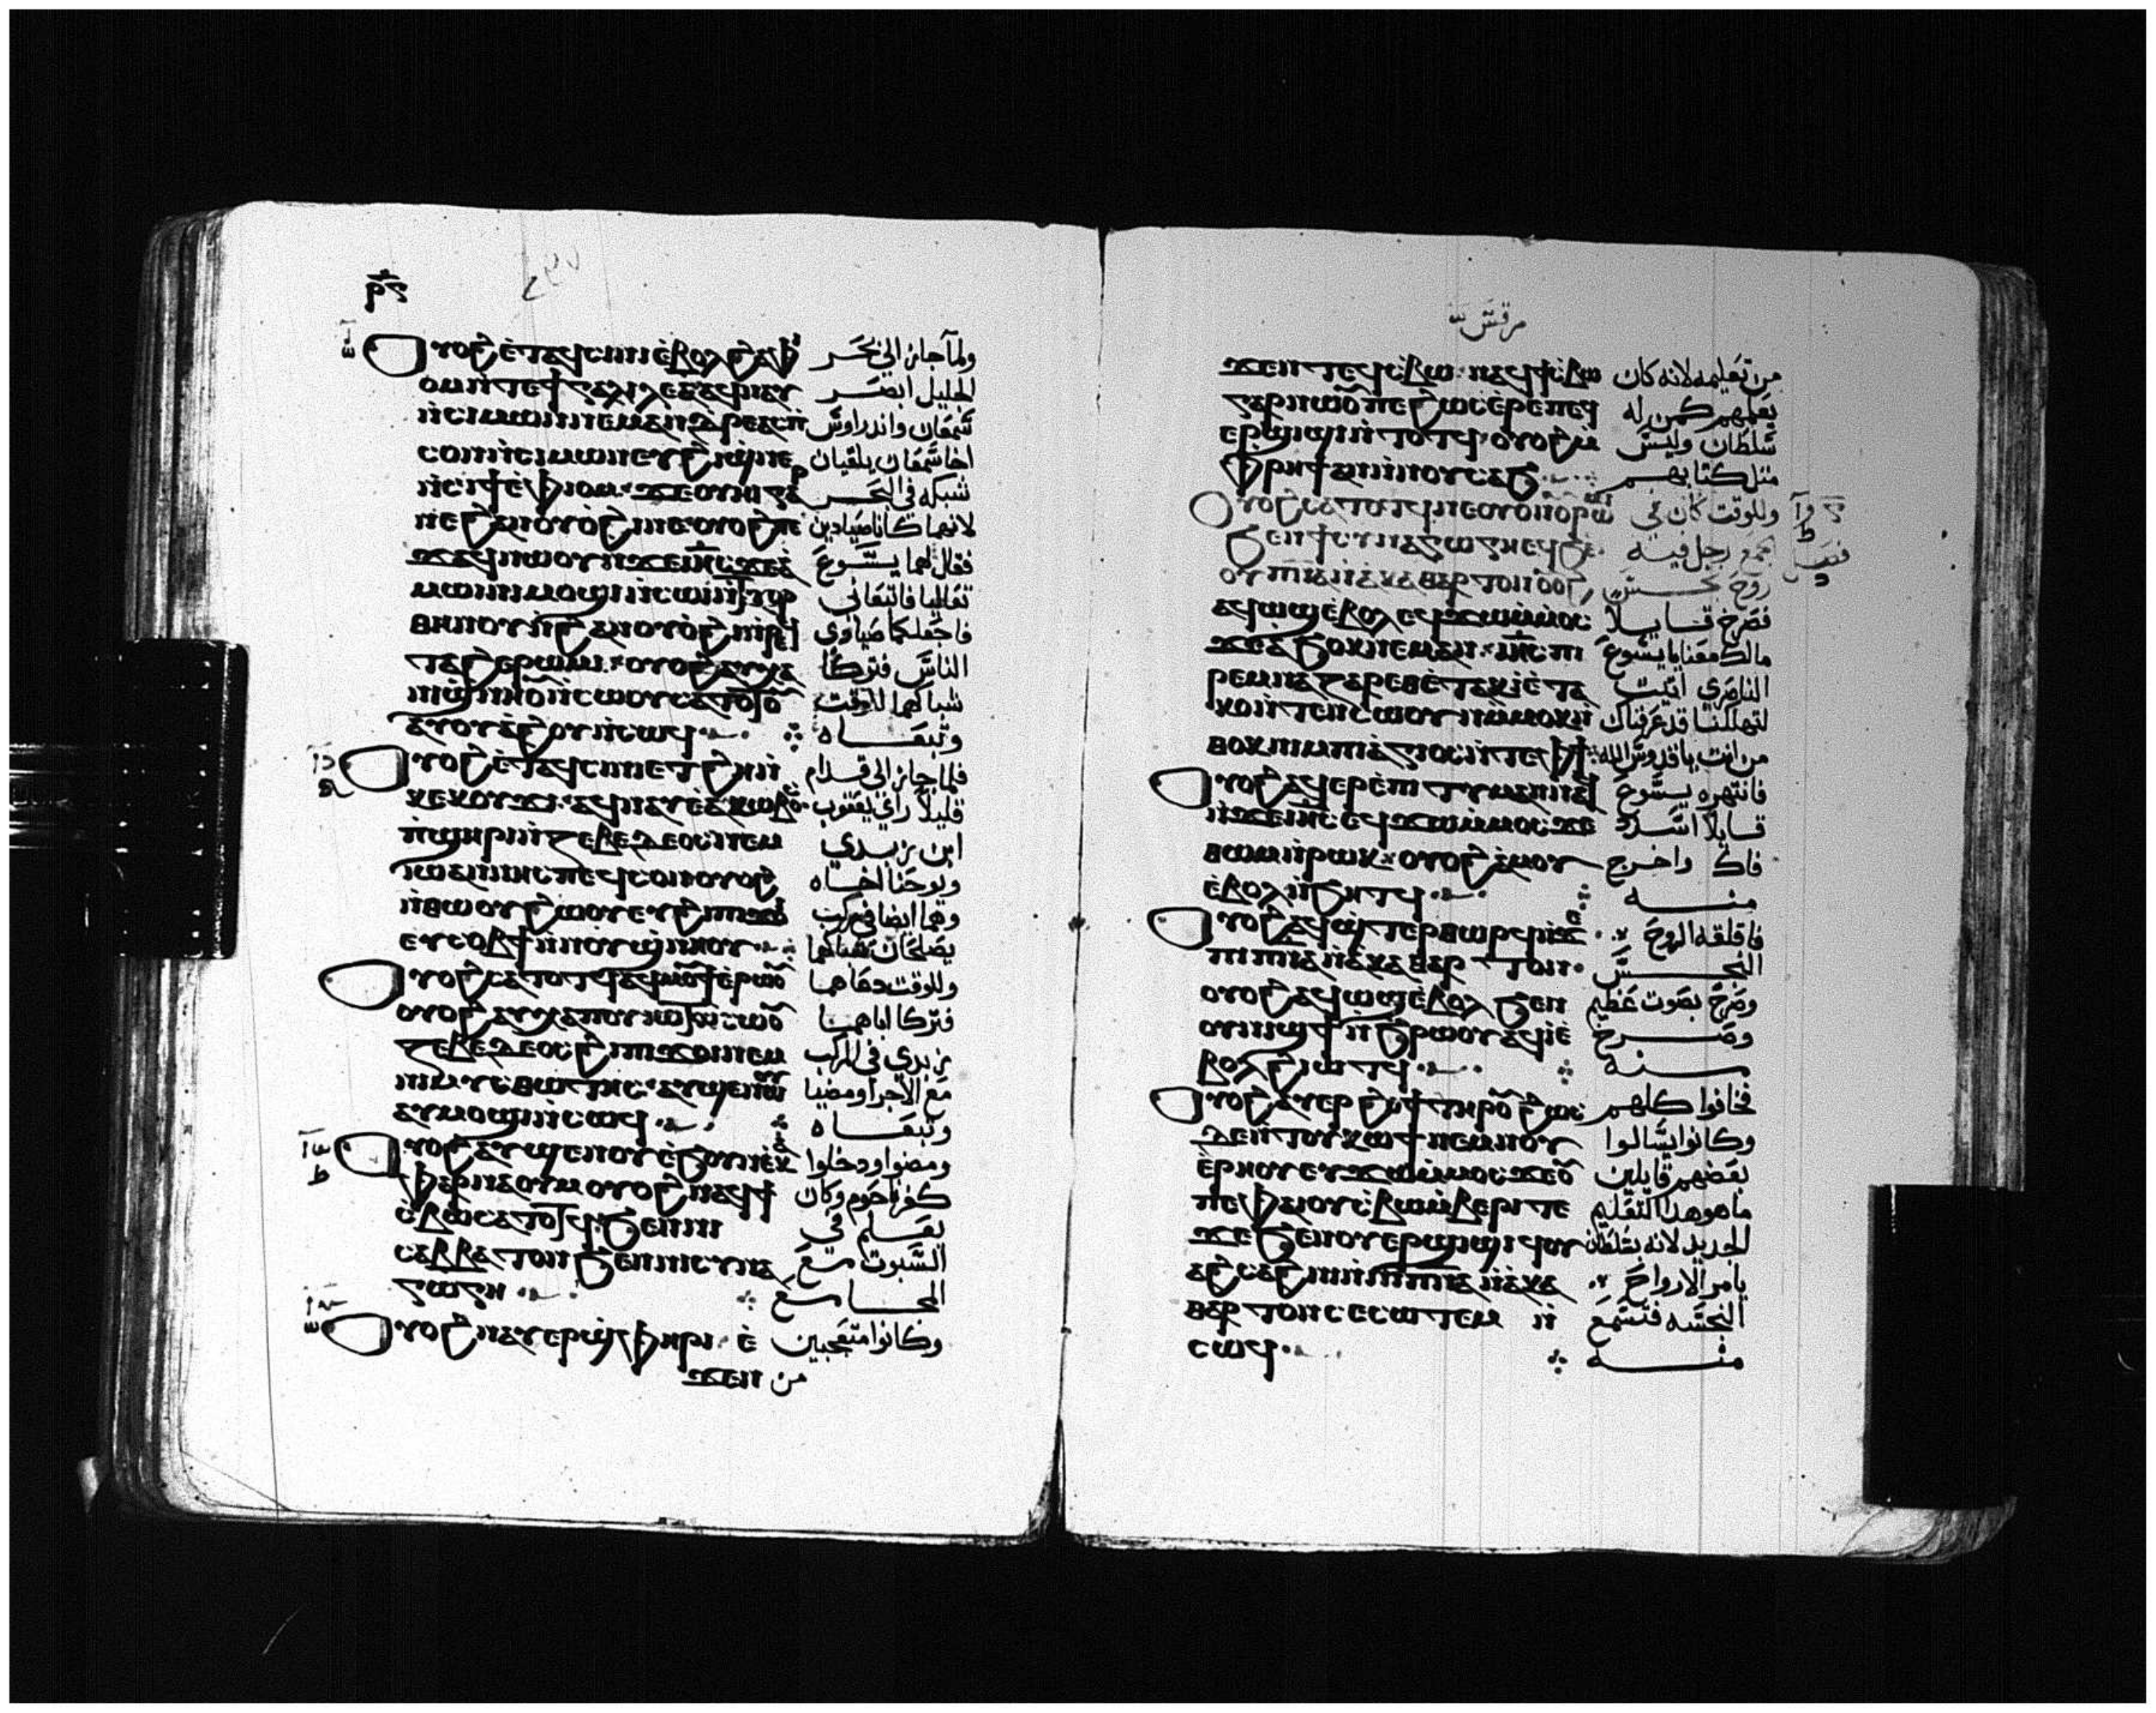 ⲣ̅ϛ̅
ⲟⲩⲟϩ ⲉ̀ⲧⲁϥⲥⲓⲛⲓ ⲉ̀ⲃⲟⲗ ϩⲁ ⲫⲓ ولما جاز الي بحر
ⲟⲙ ⲛ̀ⲧⲉ ϯⲅⲁⲗⲓⲗⲉⲁ ⲁϥⲛⲁⲩ الجليل ابصر
ⲛ̀ⲥⲓⲙⲱⲛ ⲛⲉⲙ ⲁⲛⲇⲣⲉⲁⲥ ⲡ̀ شمعان واندراوس
ⲥⲟⲛ ⲛ̀ⲥⲓⲙⲱⲛ ⲉⲩϩⲓϣⲛⲉ اخا شمعان يلقيان
ⲛ̀ⲥⲓϯ ⲉ̀ⲫⲓⲟⲙ ϫⲉ ⲟⲩⲏⲓ ⲅⲁⲣ شبكه في البحر
ⲛⲉ ϩⲁⲛⲟⲩⲟ̀ϩⲓ ⲛⲉ ⲟⲩⲟϩ ⲡⲉ لانهما كانا صيادين
ϫⲁϥ ⲛⲱⲟⲩ ⲛ̀ϫⲉ ⲓⲏ̅ⲥ̅ ϫⲉ ⲁ̀ فقال لهما يسوع
ⲙⲱⲓⲛⲓ ⲙⲟϣⲓ ⲛ̀ⲥⲱⲓ ⲛ̀ⲧⲁⲉⲣ تعاليا فاتبعاني
ⲑⲏⲛⲟⲩ ⲛ̀ϩⲁⲛⲟⲩⲟ̀ϩⲓ ⲛ̀ⲣⲉϥ فاجعلكما صيادي
ⲧⲁϩⲉ ⲣⲱⲙⲓ ⲟⲩⲟϩ ⲁⲩⲭⲁ الناس فتركا
ⲛⲓϣⲛⲏⲟⲩ ⲛ̀ⲥⲱⲟⲩ ⲥⲁⲧⲟⲧⲟⲩ شباكهما للوقت
ⲁⲩⲟⲩⲁ̀ϩⲟⲩ ⲛ̀ⲥⲱϥ وتبعاه
ⲟⲩⲟϩ ⲉ̀ⲧⲁϥⲥⲓⲛⲓ ⲉⲧϩⲏ ⲛ̀ فلما جاز الي قدام
ⲕⲉⲕⲟⲩϫⲓ ⲁϥⲛⲁⲩ ⲉ̀ⲓⲁⲕⲱⲃⲟⲥ قليلا راي يعقوب
ⲡ̀ϣⲏⲣⲓ ⲛ̀ⲍⲉⲃⲉⲇⲉⲟⲥ ⲛⲉⲙ ابن زبدي
ⲓⲱⲁⲛⲛⲏⲥ ⲡⲉϥⲥⲟⲛ ⲟⲩⲟϩ ويوحنا اخاه
ⲛ̀ⲑⲱⲟⲩ ϩⲱⲟⲩ ⲉⲩϩⲓ ⲡϫⲟⲓ وهما ايضا في مركب
ⲉⲩⲥⲟⲃϯ ⲛ̀ⲛⲟⲩϣⲛⲏⲟⲩ يصلحان شباكهما
ⲟⲩⲟϩ ⲥⲁⲧⲟⲧϥ ⲁϥⲙⲟⲩϯ ⲉ̀ⲣⲱⲟⲩ وللوقت دعاهما
ⲟⲩⲟϩ ⲁⲩⲭⲁ ⲡⲟⲩⲓⲱⲧ ⲛ̀ⲥⲱⲟⲩ فتركا اباهما
ⲍⲉⲃⲉⲇⲉⲟⲥ ϩⲓ ⲡϫⲟⲓ ⲛⲉⲙ زبدي في المركب
ⲛⲓⲣⲉⲙⲃⲉⲭⲉ ⲁⲩϣⲉⲛⲱⲟⲩ مع الاجرا ومضيا
ⲁⲩⲙⲟϣⲓ ⲛ̀ⲥⲱϥ وتبعاه
ⲟⲩⲟϩ ⲁⲩϣⲉⲛⲱⲟⲩ ⲉ̀ϧⲟⲩⲛ ⲉ̀ⲕⲁ ومضوا ودخلوا
ⲫⲁⲣⲛⲁⲟⲩⲙ ⲟⲩⲟϩ ⲛⲁϥϯ كفرناحوم وكان
ⲥ̀ⲃⲱ ⲥⲁⲧⲟⲧϥ ϧⲉⲛ ⲛⲓ يعلم في
ⲥⲁⲃⲃⲁⲧⲟⲛ ϧⲉⲛ ⲛⲓⲥⲩⲛⲁ السبوت مع
ⲅⲱⲅⲏ المجامع
ⲟⲩⲟϩ ⲛⲁⲩⲉⲣϣ̀ⲫⲏⲣⲓ ⲉ̀ وكانوا متعجبين
ϫⲉⲛ من
مرقس
ϫⲉⲛ ⲧⲉϥⲥ̀ⲃⲱ ⲛⲁϥϯⲥ̀ⲃⲱ من تعليمه لانه كان
ⲅⲁⲣ ⲛⲱⲟⲩ ⲡⲉ ϩⲱⲥ ⲉ̀ⲣⲉ ⲡⲉϥ يعلمهم كمن له
ⲉⲣϣⲓϣⲓ ⲛ̀ⲧⲟⲧϥ ⲟⲩⲟϩ ⲙ̀ سلطان وليس
ⲫ̀ⲣⲏϯ ⲁⲛ ⲛ̀ⲛⲟⲩⲥⲁϧ مثل كتابهم
ⲟⲩⲟϩ ⲥⲁⲧⲟⲧϥ ⲛⲉ ⲟⲩⲟⲛ ⲟⲩⲣⲱⲙⲓ وللوقت كان في
ϧⲉⲛ ϯⲥⲩⲛⲁⲅⲱⲅⲏ ⲉϥϧⲉⲛ مجمع رجل فيه
ⲟⲩⲡ̅ⲛ̅ⲁ̅ ⲛ̀ⲁⲕⲁⲑⲁⲣⲧⲟⲛ ⲟⲩⲟϩ روح نجس
ⲁϥⲱϣ ⲉ̀ⲃⲟⲗ ⲉϥϫⲱ ⲙ̀ⲙⲟⲥ فصرخ قايلا
ϫⲉ ⲁϧⲟⲕ ⲛⲉⲙⲁⲛ ⲓⲏ̅ⲥ̅ ⲡⲓ مالك معنا يا يسوع
ⲣⲉⲙⲛⲁⲍⲁⲣⲉⲑ ⲉ̀ⲧⲁⲕⲓ ⲉ̀ⲧⲁ الناصري اتيت
ⲕⲟⲛ ⲧⲉⲛⲥⲱⲟⲩⲛ ⲙ̀ⲙⲟⲕ ⲛ̀ لتهلكنا قد عرفناك
ⲑⲟⲕ ⲛⲓⲙ ⲡⲓⲁ̀ⲅⲓⲟⲥ ⲛ̀ⲧⲉ ⲫϯ من انت يا قدوس الله
ⲟⲩⲟϩ ⲁϥⲉⲣⲉ̀ⲡⲓⲧⲓⲙⲁⲛ ⲛⲁϥ فانتهره يسوع
ⲛ̀ϫⲉ ⲓⲏ̅ⲥ̅ ⲉϥϫⲱ ⲙ̀ⲙⲟⲥ ϫⲉ قايلا اسدد
ⲑⲱⲙ ⲛ̀ⲣⲱⲕ ⲟⲩⲟϩ ⲁ̀ⲙⲟⲩ فاك واخرج
ⲉ̀ⲃⲟⲗ ⲛ̀ϧⲏⲧϥ منه
ⲟⲩⲟϩ ⲁϥϣ̀ⲧⲉⲣⲑⲱⲣϥ ⲛ̀ϫⲉ فاقلقه الروح
ⲡⲓⲡ̅ⲛ̅ⲁ̅ ⲛ̀ⲁⲕⲁⲑⲁⲣⲧⲟⲛ النجس
ⲟⲩⲟϩ ⲁϥⲱϣ ⲉ̀ⲃⲟⲗ ϧⲉⲛ وصرخ بصوت عظيم
ⲟⲩⲛⲓϣϯ ⲛ̀ϧⲣⲱⲟⲩ ⲁϥⲓ ⲉ̀ وخرج
ⲃⲟⲗ ϩⲓⲱⲧϥ منه
ⲟⲩⲟϩ ⲁⲩⲉⲣϩⲟϯ ⲧⲏⲣⲟⲩ ϩⲱⲥ فخافوا كلهم
ⲇⲉ ⲛ̀ⲧⲟⲩⲕⲱϯ ⲛⲉⲙ ⲛⲟⲩ وكانوا يسالوا
ⲉ̀ⲣⲏⲟⲩ ⲉⲩϫⲱ ⲙ̀ⲙⲟⲥ ϫⲉ ⲟⲩ بعضهم قايلين
ⲡⲉ ⲫⲁⲓ ⲟⲩⲥ̀ⲃⲱ ⲙ̀ⲃⲉⲣⲓ ⲧⲉ ما هو هذا التعليم
ϫⲉ ϧⲉⲛ ⲟⲩⲉⲣϣⲓϣⲓ ϥⲟⲩ الجديد لانه بسلطان
ⲁϩⲥⲁϩⲛⲓ ⲛ̀ⲛⲓⲡ̅ⲛ̅ⲁ̅ ⲛ̀ⲁⲕⲁ يامر الارواح
ⲑⲁⲣⲧⲟⲛ ⲥⲉⲥⲱⲧⲉⲙ ⲛ̀ النجسه فتسمع
ⲥⲱϥ منه